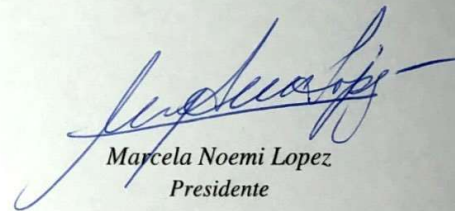 Marcela Noemi Lopez
Presidente